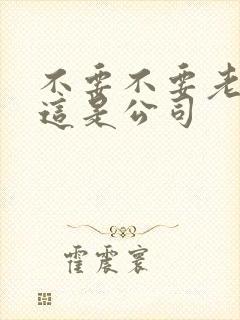 不要不要老
這是公司
霍震寰